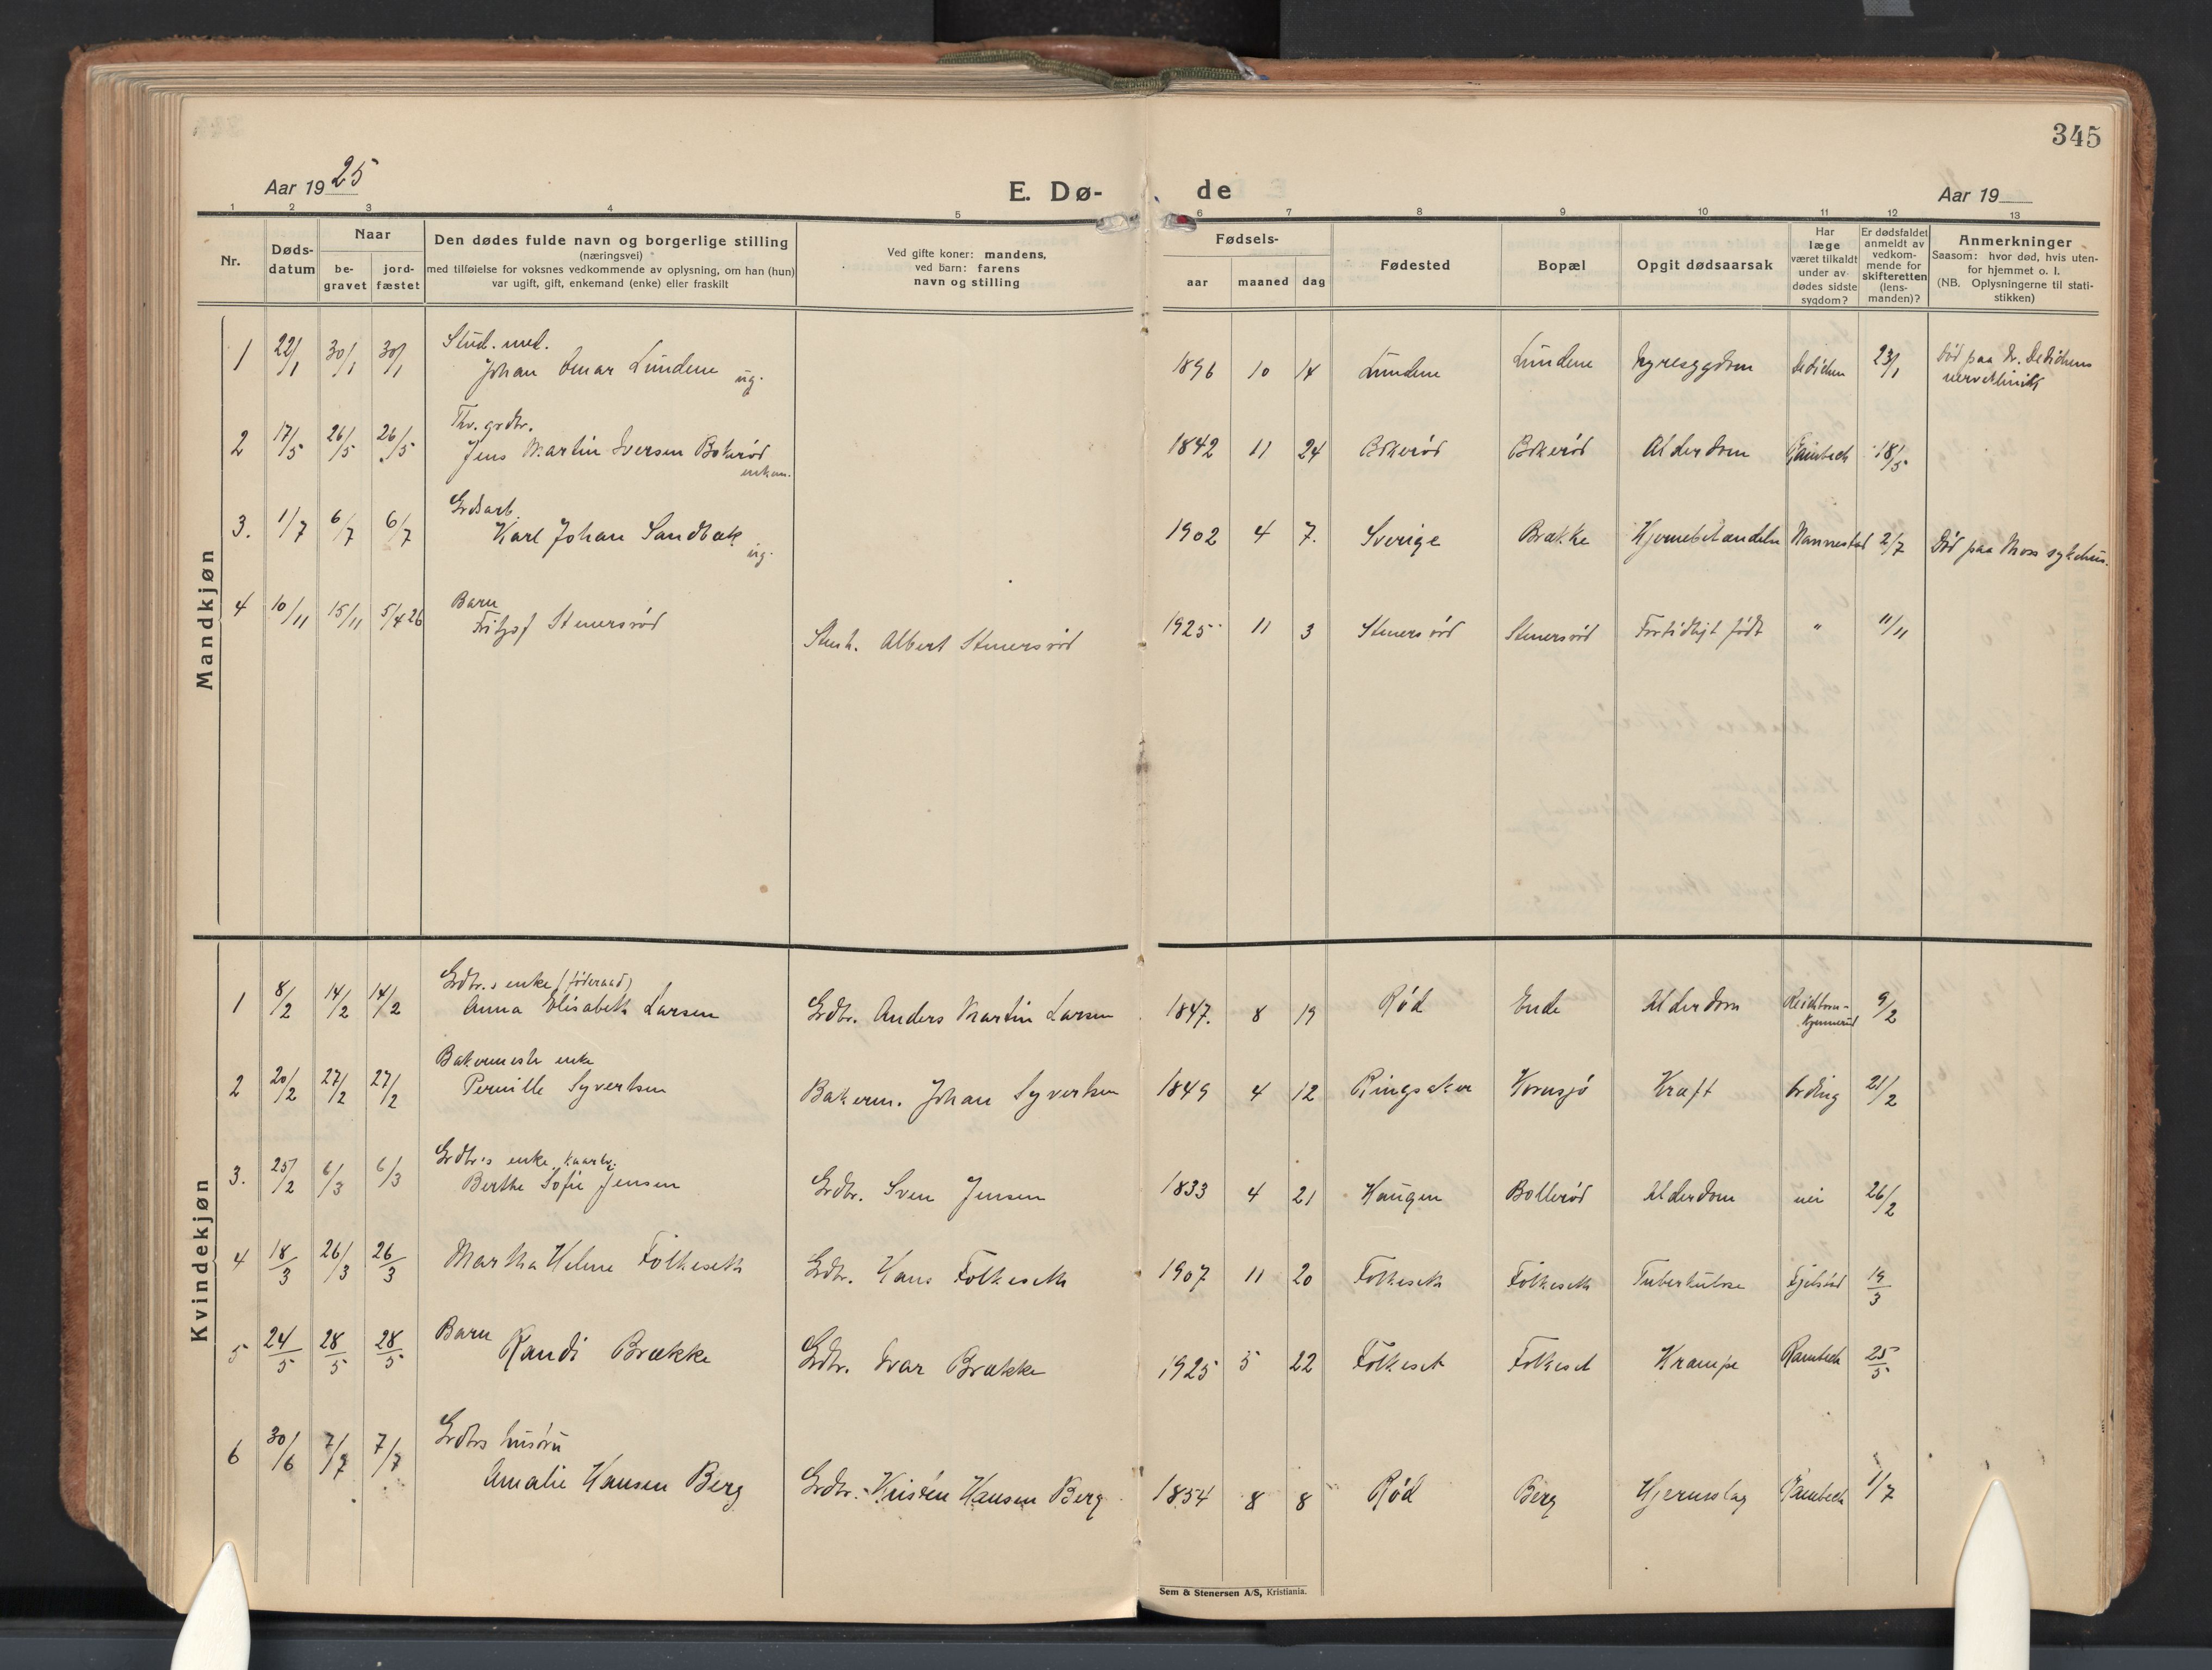 345
Aar 1925
E. Dø-
de
Aar 19
1 2 3 4 5 6 7 8 9 10 11 12 13
Nr.
Døds-
datum
Naar
be-
gravet
jord-
fæstet
Den dødes fulde navn og borgerlige stilling
(næringsvei)
med tilføielse for voksnes vedkommende av oplysning, om han (hun)
var ugift, gift, enkemand (enke) eller fraskilt
Ved gifte koner: mandens,
ved barn: farens
navn og stilling
Fødsels-
aar maaned dag
Fødested
Bopæl
Opgit dødsaarsak
Har
læge
været tilkaldt
under av-
dødes sidste
sygdom?
Er dødsfaldet
anmeldt av
vedkom-
mende for
skifteretten
(lens-
manden)?
Anmerkninger
Saasom: hvor død, hvis uten-
for hjemmet o. l.
(NB. Oplysningerne til stati-
stikken)
Mandkjøn
Stud. med.
1 22/1 30/1 30/1 Johan Omar Lundene ug. 1896 10 14 Lundene Lundene Nyresygdom Dedichen 23/1 Død paa Dr. Dedichens
nerveklinik
Thv. grdbr.
2 17/5 26/5 26/5 Jens Martin Iversen Bokerød 1842 11 24 Bokerød Bokerød Alderdom Rambech 18/5
enkem.
Grdsarb.
3. 1/7 6/7 6/7 Karl Johan Sandbæk ug. 1902 4 7. Sverige Brække Hjernebetændelse Nannestad 2/7 Død paa Moss sykehus.
Barn
4 10/11 15/11 5/4 26 Fritjof Stenersrød Albert Stenersrød 1925 11 3 Stenersrød Stenersrød Fortidligt født " 11/11
Kvindekjøn
Grdbr.s enke (føderaad)
1 8/2 14/2 14/2 Anna Elisabeth Larsen Grdbr. Anders Martin Larsen 1847. 8 19 Rød Ende Alderdom 9/2
Bakermestr enke
2 20/2 27/2 27/2 Pernille Syvertsen Bakerm. Johan Syvertsen 1849 4 12 Ringsaker Kornsjø Kræft Ording 21/2
Grdbr.s enke, kaark.
3. 25/2 6/3 6/3 Berthe Sofie Jensen Grdbr. Sven Jensen 1833 4 21 Haugen Bollerød Alderdom nei 26/2
4 18/3 26/3 26/3 Martha Helene Folkeseth Grdbr. Hans Folkeseth 1907 11 20 Folkeseth Folkeseth Tuberkulose 19/3
5 24/5 28/5 28/5 Barn Randi Brække Grdbr. Ivar Brække 1925 5 22 Folkeset Folkeset Krampe Rambech 25/5
Grdbrs husfru
6 30/6 7/7 7/7 Amalie Hansen Berg Grdbr. Kristen Hansen Berg 1854 8 8 Rød Berg Hjerneslag Rambech 1/7
Sem & Stenersen A/S, Kristiania.